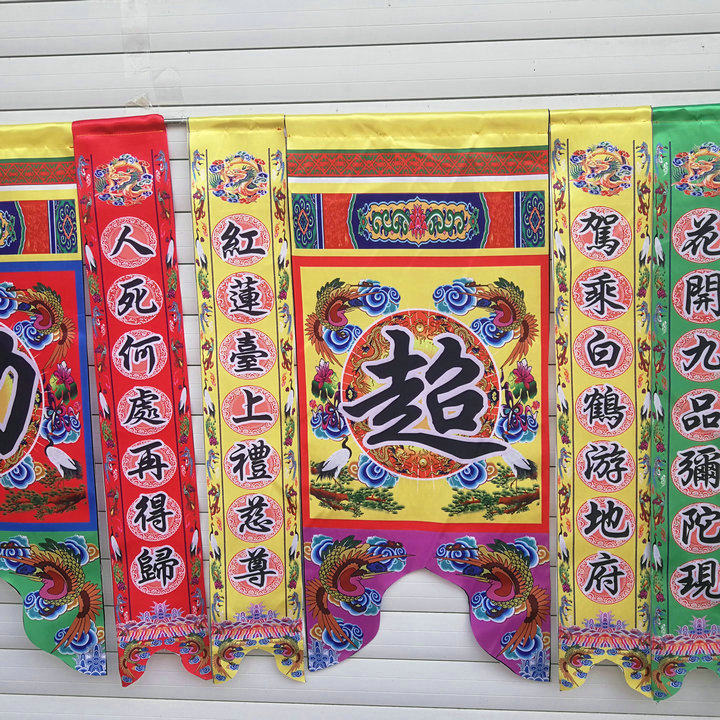 人死何處再得歸
紅蓮臺上禮慈尊
超
駕乘白鶴游地府
花開九品彌陀現